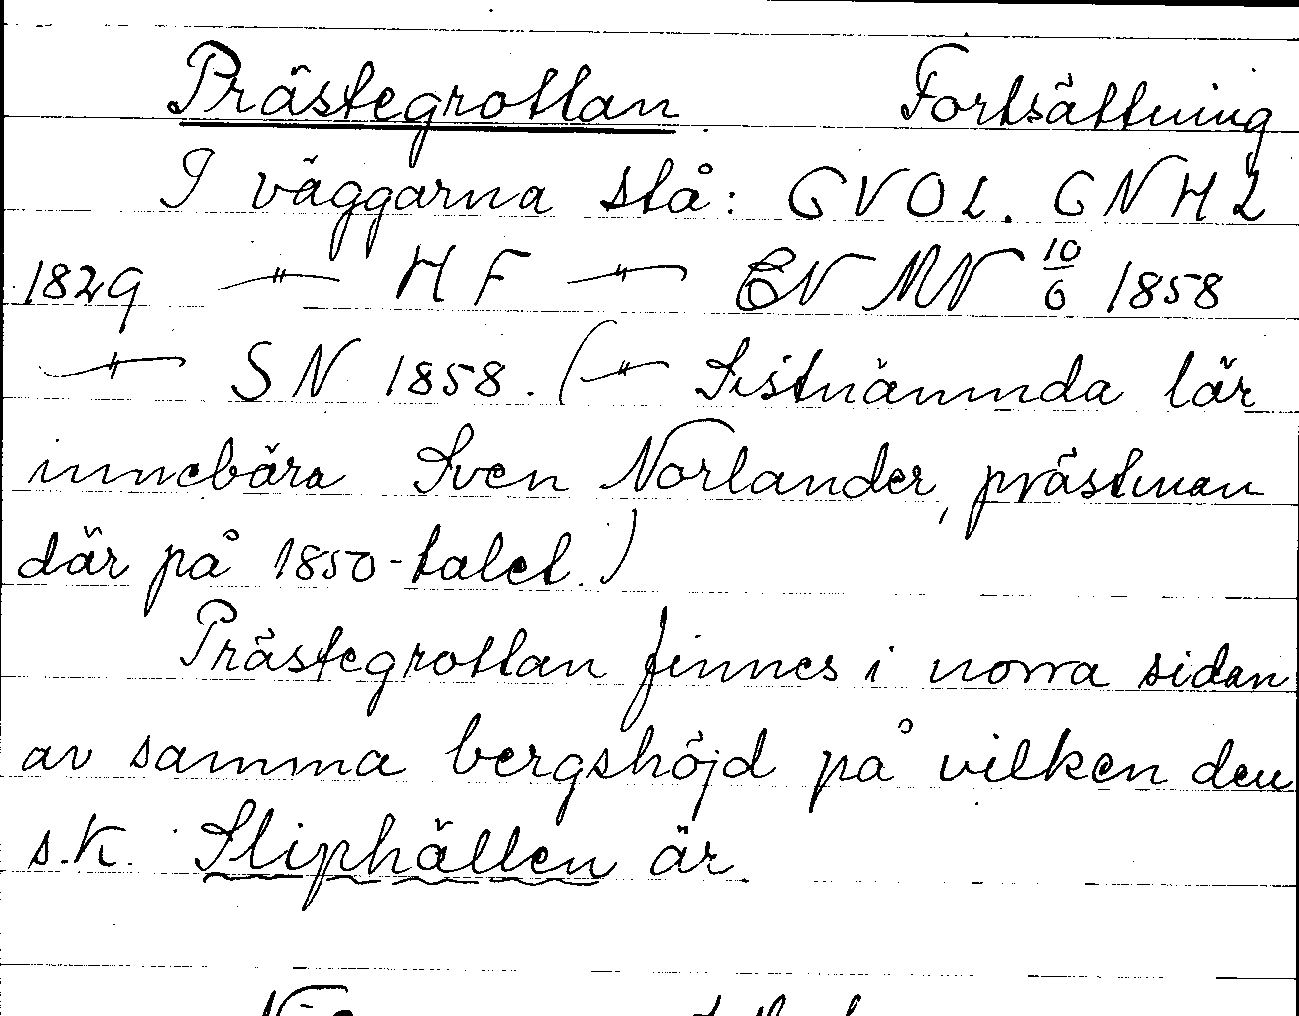 Prästegrottan Fortsättning
I väggarna stå: GVOL. GNHL
1829 —〃— HF —〃— EN MN 10/6 1858
—〃— SN 1858. (—〃— Sistnämnda lär
innebära Sven Norlander, prästman
där på 1850-talet.)
Prästegrottan finnes i norra sidan
av samma bergshöjd på vilken den
s.k. Sliphällen är.